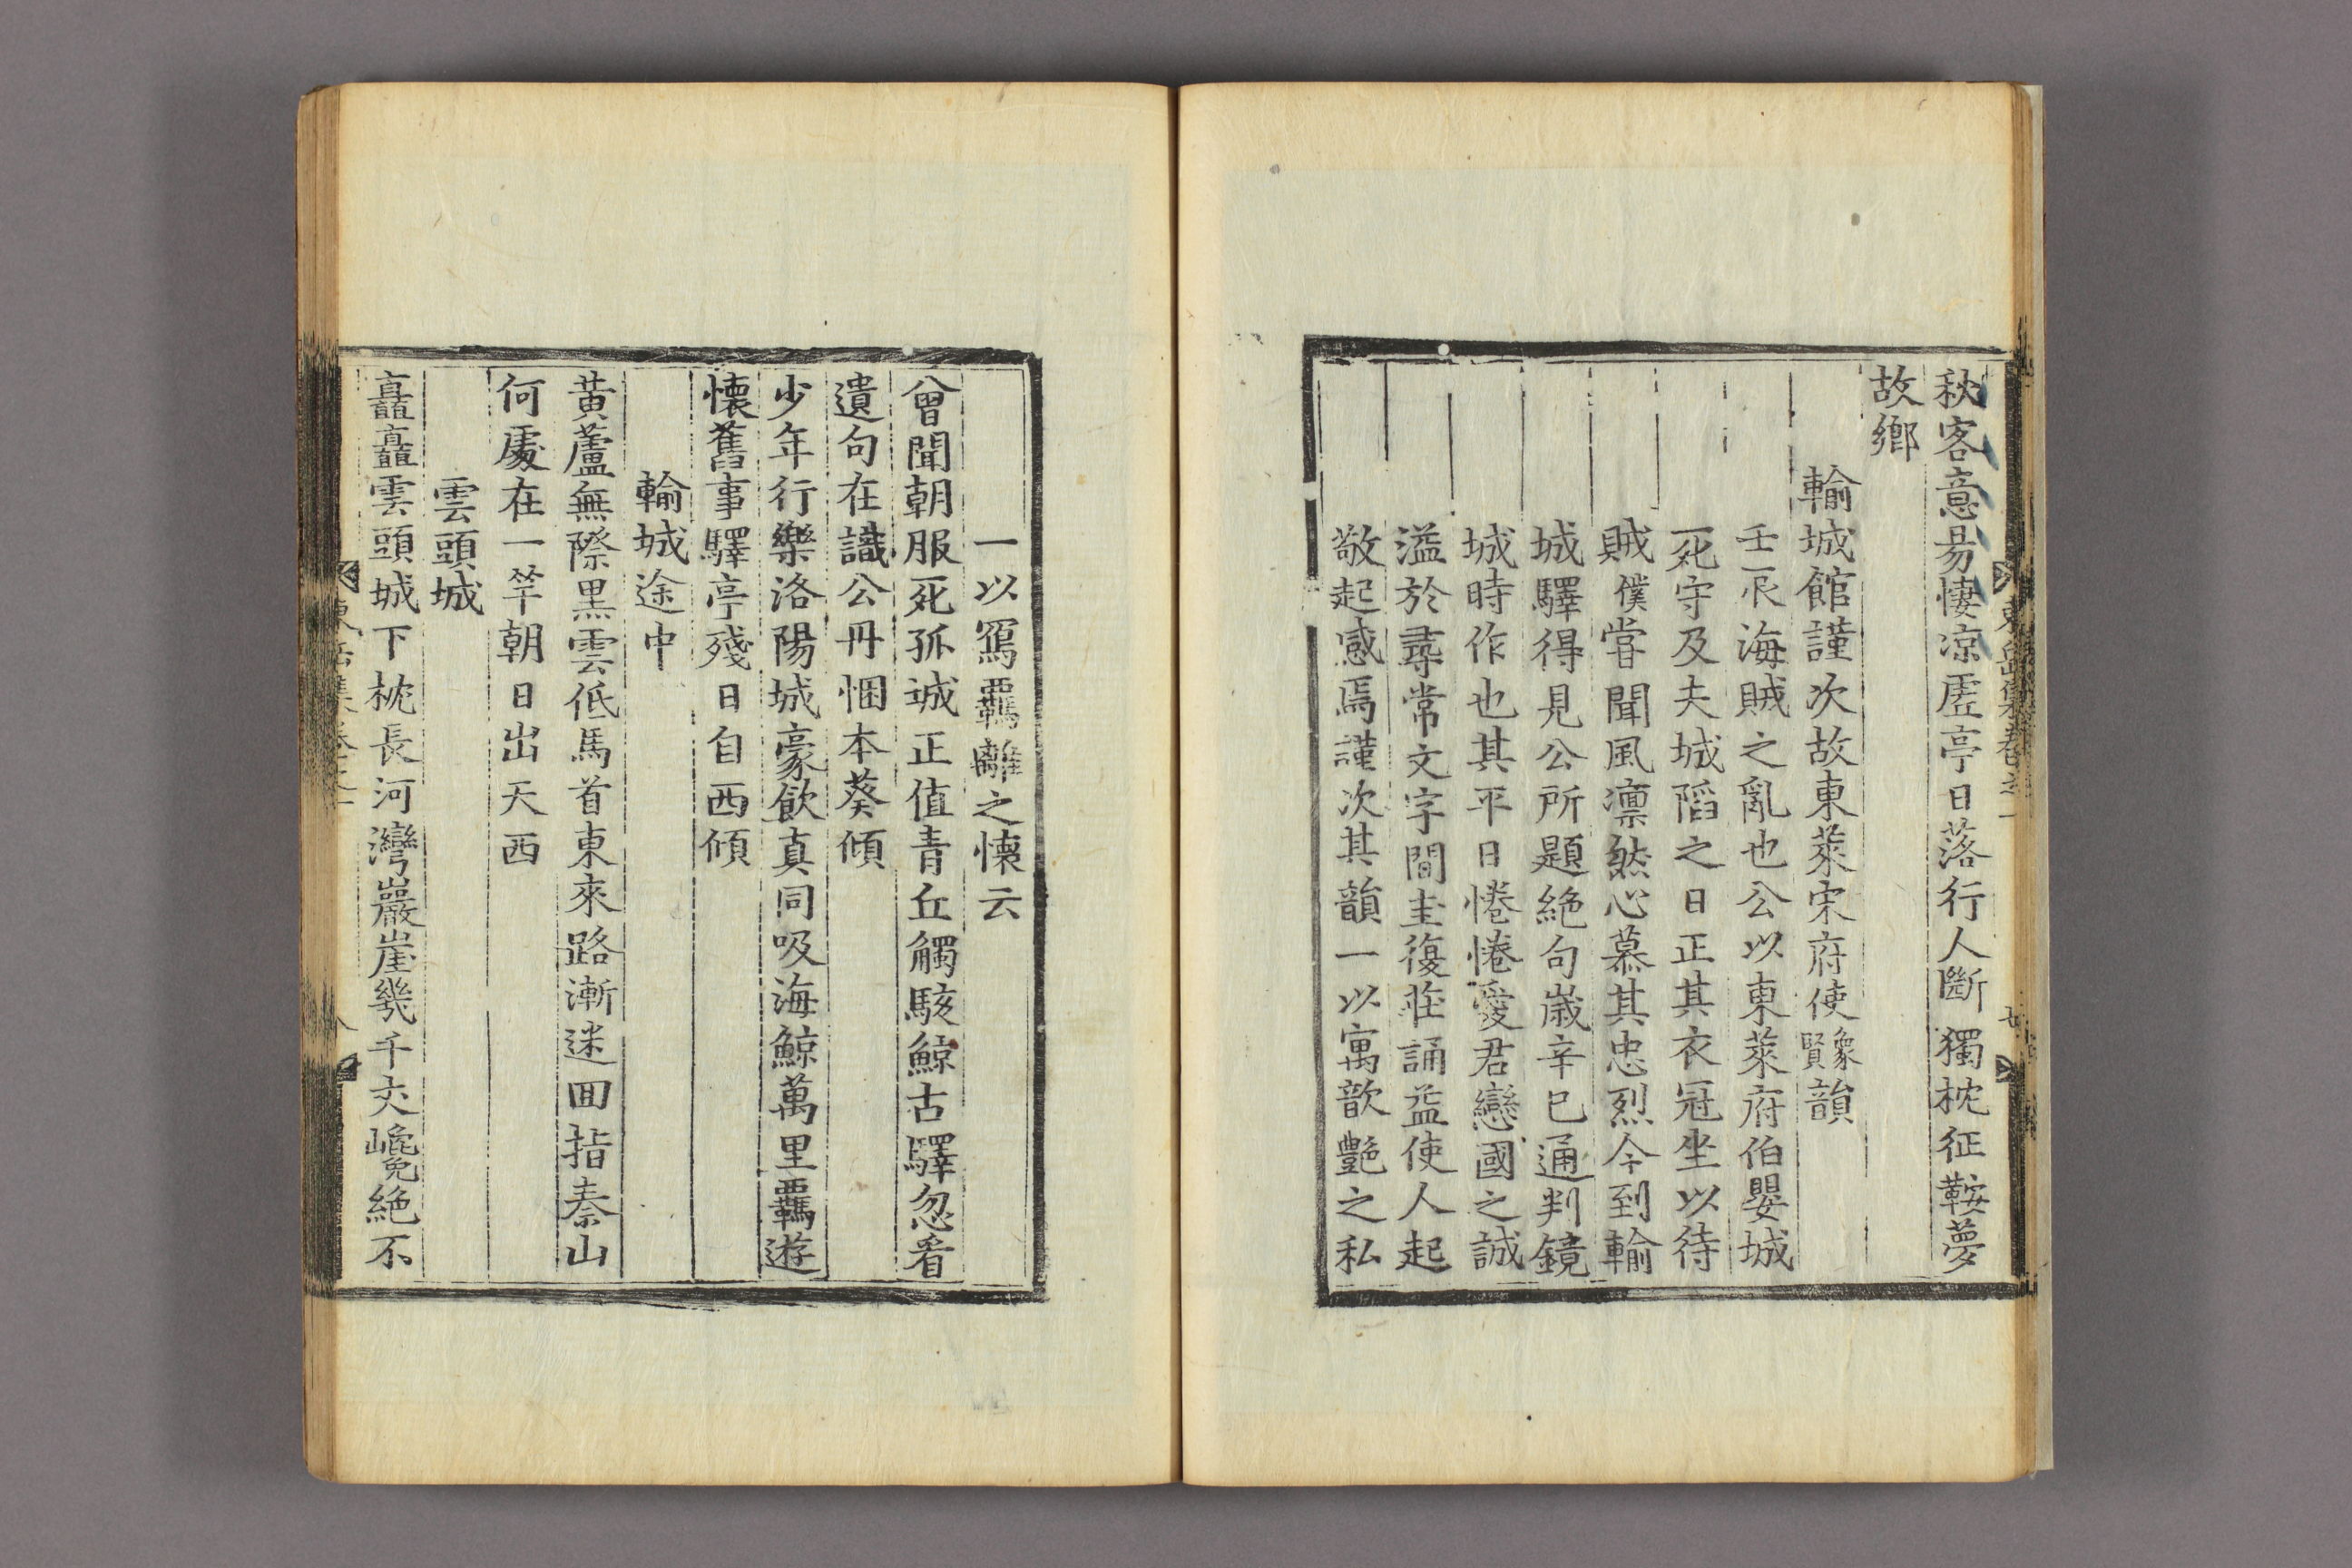 秋客意易悽凉虗亭日落行人斷獨枕征鞍夢
故鄉
輸城館謹次故東萊宋府使象賢韻
壬辰海賊之亂也公以東萊府伯嬰城
死守及夫城陷之日正其衣冠坐以待
賊僕嘗聞風凛然心慕其忠烈今到輸
城驛得見公所題絶句歲辛巳通判鏡
城時作也其平日惓惓愛君戀國之誠
溢於尋常文字間圭復莊誦益使人起
敬起感焉謹次其韻一以寓歆艶之私
一以寫羈離之懷云
曾聞朝服死孤城正值青丘觸駭鯨古驛忽看
遺句在識公丹悃本葵傾
少年行樂洛陽城豪飮真同吸海鯨萬里羈遊
懷舊事驛亭殘日自西傾
輸城途中
黄蘆無際黒雲低馬首東來路漸迷囬指秦山
何處在一竿朝日出天西
雲頭城
矗矗雲頭城下枕長河灣巖崖幾千丈巉絶不